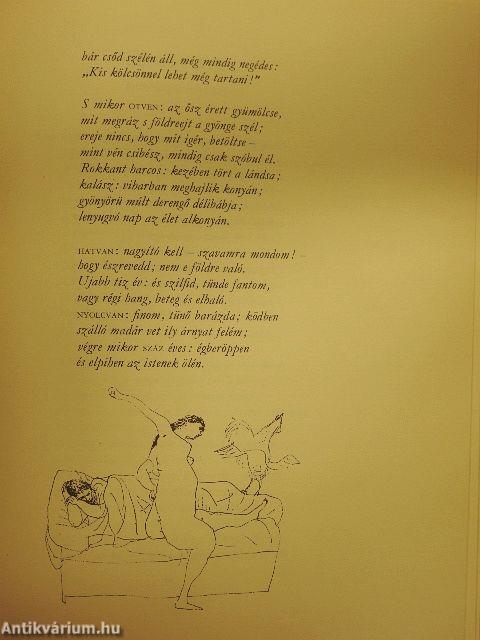 bár csőd szélén áll, még mindig negédes:
„Kis kölcsönnel lehet még tartani!”
S mikor ÖTVEN: az ősz érett gyümölcse,
mit megráz s földreejt a gyönge szél;
ereje nincs, hogy mit igér, betöltse –
mint vén csibész, mindig csak szóbul él.
Rokkant harcos: kezében tört a lándsa;
kalász: viharban meghajlik konyán;
gyönyörü múlt derengő délibábja;
lenyugvó nap az élet alkonyán.
HATVAN: nagyító kell – szavamra mondom! –
hogy észrevedd; nem e földre való.
Ujabb tiz év: és szilfid, tünde fantom,
vagy régi hang, beteg és elhaló.
NYOLCVAN: finom, tünő barázda; ködben
szálló madár vet ily árnyat felém;
végre mikor SZÁZ éves: égberöppen
és elpihen az istenek ölén.
Antikvárium.hu